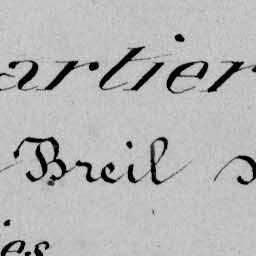 artier
Breil
es